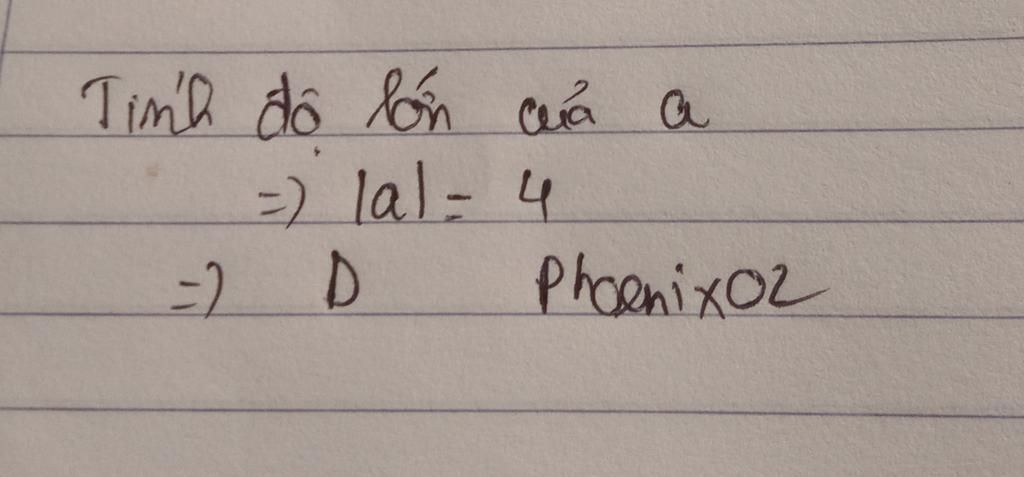 Tính độ lớn của a
=) |a| = 4
=) D Phoenix02